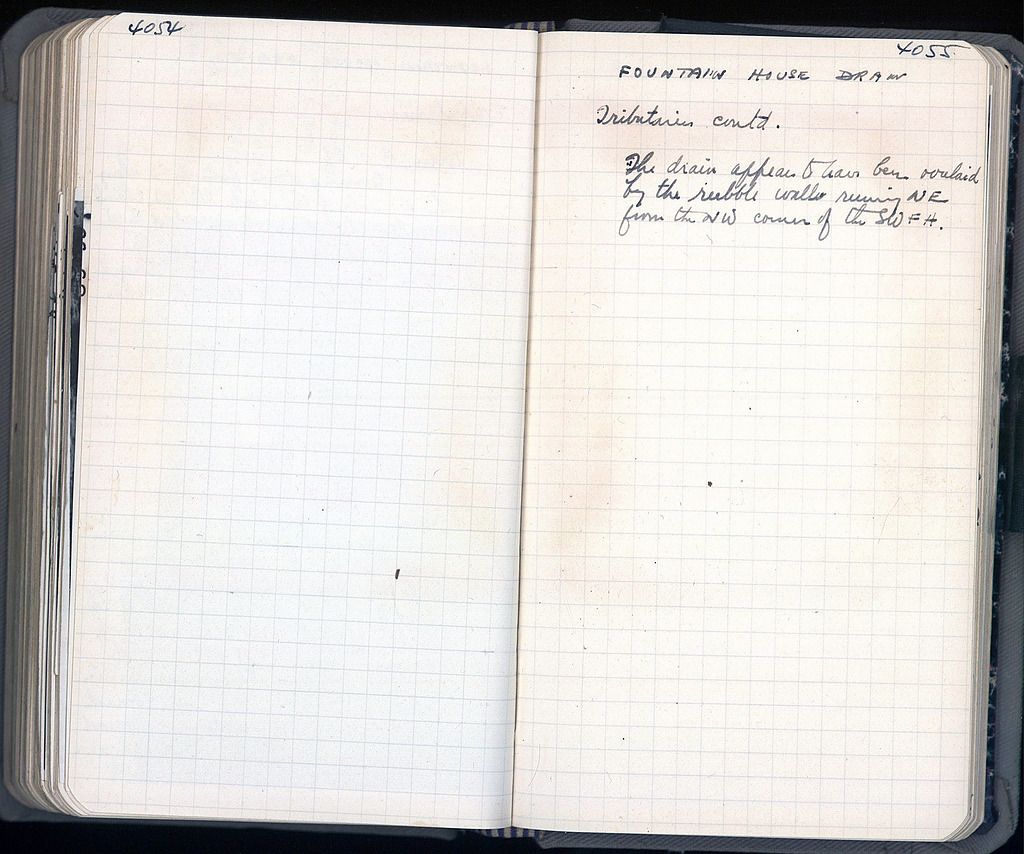 4054
4055
FOUNTAIN HOUSE DRAIN
Tributaries contd.
The drain appears to have been overlaid
by the rubble walls running NE
from the NW corner of the SWFH.